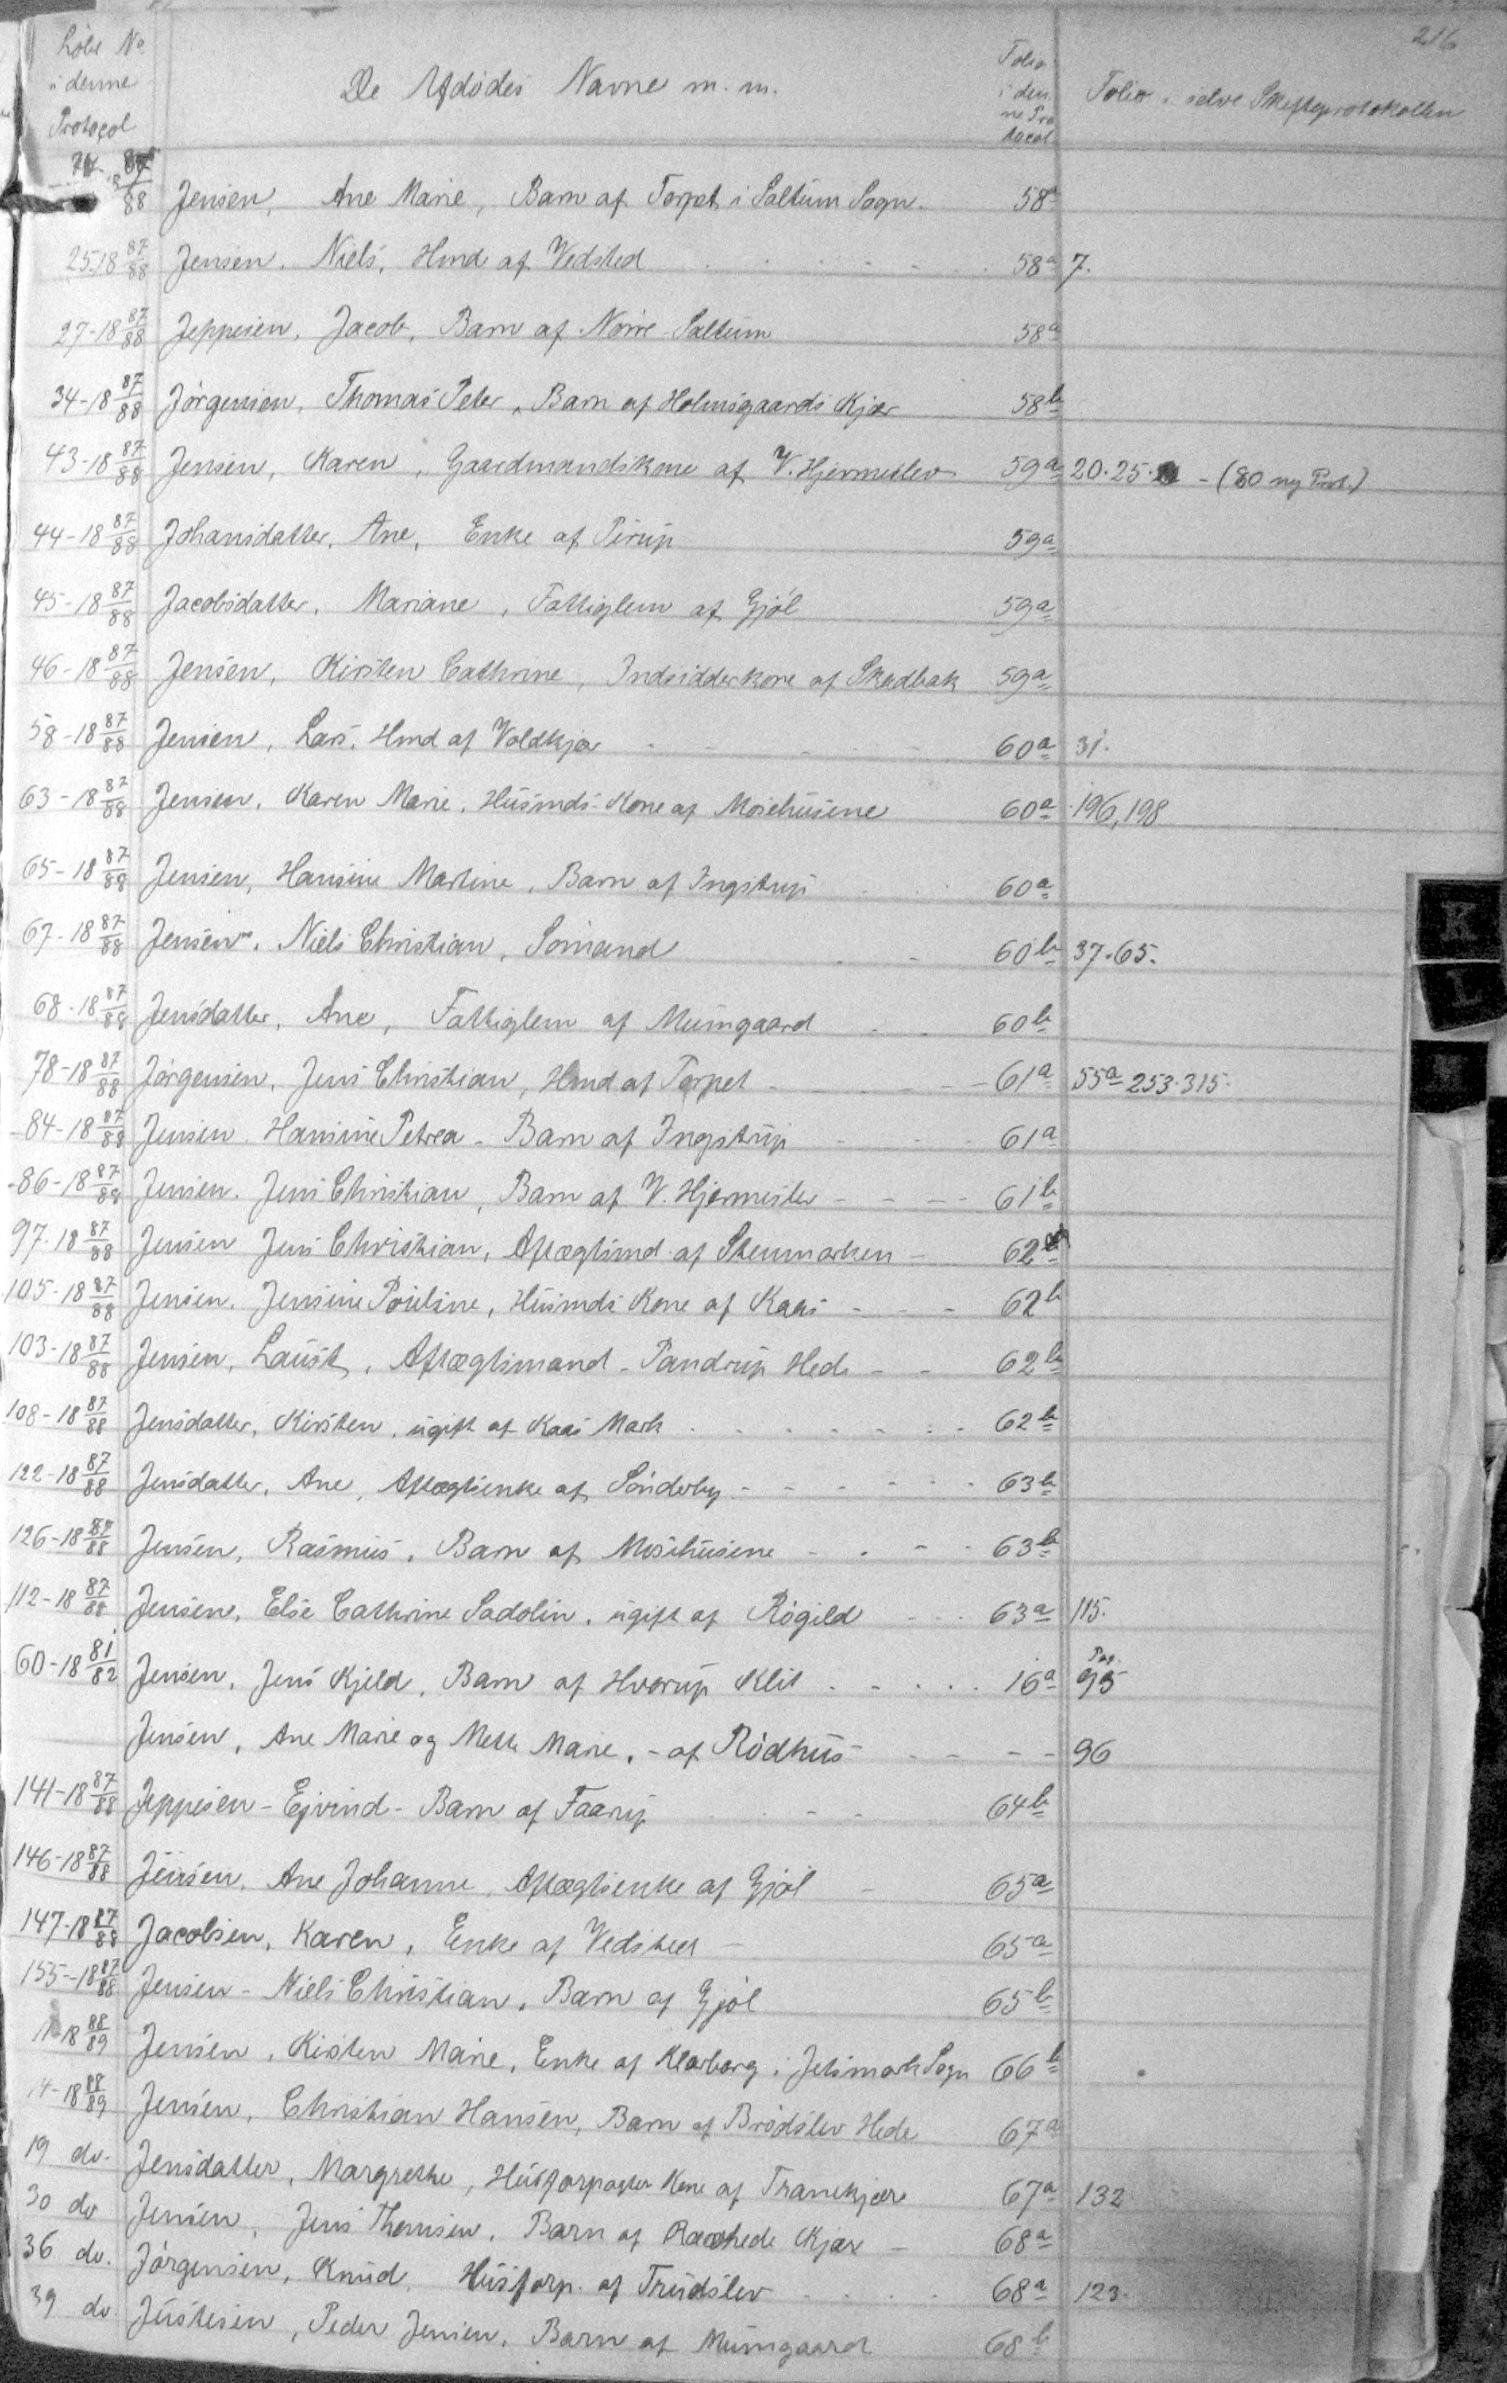 216
Løbe No i denne Protocol | De Afdødes Navne m. m. | Folio i denne Protocol | Folio i selve Skifteprotokollen
24-18 87/88 Jensen, Ane Marie, Barn af Torpet i Saltum Sogn. 58a
25-18 87/88 Jensen, Niels, Hmd af Vedsted 58a 7.
27-18 87/88 Jeppesen, Jacob, Barn af Nørre Saltum 58a
34-18 87/88 Jørgensen, Thomas Peter, Barn af Holmsgaards Kjær 58b
43-18 87/88 Jensen, Karen, Gaardmandskone af V. Hjermeslev 59a 20.25. - (80 ny Prot.)
44-18 87/88 Johansdatter, Ane, Enke af Pirup 59a
45-18 87/88 Jacobsdatter, Mariane, Fattiglem af Gjøl 59a
46-18 87/88 Jensen, Kirsten Cathrine, Indsidderkone af Skedbak 59a
58-18 87/88 Jensen, Lars, Hmd af Voldkjær 60a 31.
63-18 87/88 Jensen, Karen Marie, Husmds Kone af Mosehusene 60a 196, 198
65-18 87/88 Jensen, Hansine Martine, Barn af Ingstrup 60a
67-18 87/88 Jensen, Niels Christian, Sømand 60b 37.65.
68-18 87/88 Jensdatter, Ane, Fattiglem af Munngaard 60b
78-18 87/88 Jørgensen, Jens Christian, Hmd af Torpet 61a 55a 253.315.
84-18 87/88 Jensen Hansine Petrea - Barn af Ingstrup 61a
86-18 87/88 Jensen. Jens Christian, Barn af V. Hjermeslev 61b
97-18 87/88 Jensen Jens Christian, Aftægtsmd af Stenmarken 62
105-18 87/88 Jensen. Jensine Pouline, Husmds Kone af Kaas 62b
103-18 87/88 Jensen, Laust, Aftægtsmand - Pandrup Hede 62b
108-18 87/88 Jensdatter, Kirsten, ugift af Kaas Mark 62b
122-18 87/88 Jensdatter, Ane, Aftægtsenke af Sønderby 63b
126-18 87/88 Jensen, Rasmus, Barn af Mosehusene 63b
112-18 87/88 Jensen, Else Cathrine Sadolin, ugift af Røgild 63a 115.
60-18 81/82 Jensen, Jens Kjeld, Barn af Hvorup Klit 16a Pag. 95
Jensen, Ane Marie og Mette Marie, - af Rødhus 96
141-18 87/88 Jeppesen - Ejvind - Barn af Faarup 64b
146-18 87/88 Jensen, Ane Johanne, Aftægtsenke af Gjøl 65a
147-18 87/88 Jacobsen, Karen, Enke af Vedsted 65a
155-18 87/88 Jensen - Niels Christian, Barn af Gjøl 65b
11-18 88/89 Jensen, Kirsten Marie, Enke af Klarborg i Jetsmark Sogn 66b
14-18 88/89 Jensen, Christian Hansen, Barn af Brødslev Hede 67a
19 do. Jensdatter, Margrethe, Husforpagter Kone af Tranekjær 67a 132
30 do Jensen, Jens Thomsen, Barn af Kjær 68a
36 do. Jørgensen, Knud, Husforp. af Trudslev 68a 123.
39 do Justesen, Peder Jensen, Barn af Munngaard 68b
K
L